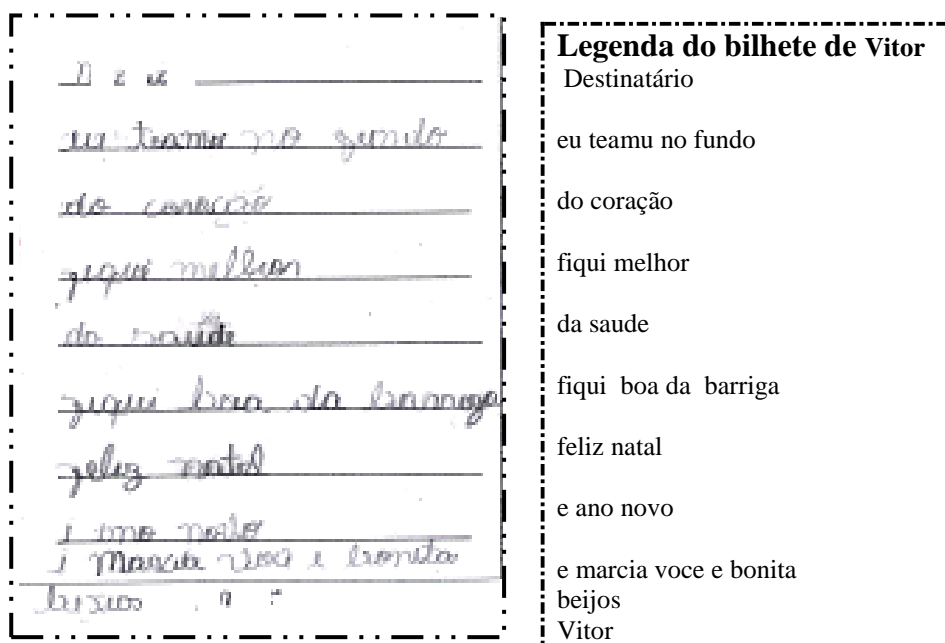 eu teamu no fundo
do coração
fiqui melhor
da saude
fiqui boa da barriga
feliz natal
i ano novo
i Marcia voce e bonita
Legenda do bilhete de Vitor
Destinatário
eu teamu no fundo
do coração
fiqui melhor
da saude
fiqui boa da barriga
feliz natal
e ano novo
e marcia voce e bonita
beijos
Vitor